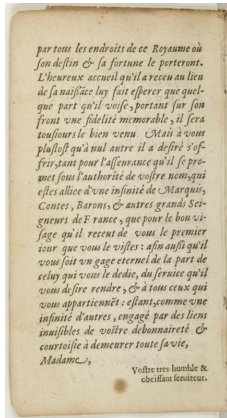 par tous les endroits de ce Royaume où
son destin & sa fortune le porteront.
L'heureux accueil qu'il a receu au lieu
de sa naissãce luy fait esperer que quel-
que part qu'il voise, portant sur son
front vne fidelité memorable, il sera
tousiours le bien venu Mais à vous
plustost qu'à nul autre il a desiré s'of-
frir, tant pour l'asseurance qu'il se pro-
met sous l'authorité de vostre nom, qui
estes alliee d'vne infinité de Marquis,
Contes, Barons, & autres grands Sei-
gneurs de France, que pour le bon vi-
sage qu'il recent de vous le premier
iour que vous le vistes : afin aussi qu'il
vous soit vn gage eternel de la part de
celuy qui vous le dedie, du seruice qu'il
vous desire rendre, & à tous ceux qui
vous appartiennẽt : estant, comme vne
infinité d'autres, engagé par des liens
inuisibles de vostre debonnaireté &
courtoisie à demeurer toute sa vie,
Madame,
Vostre tres humble &
obeissant seruiteur.